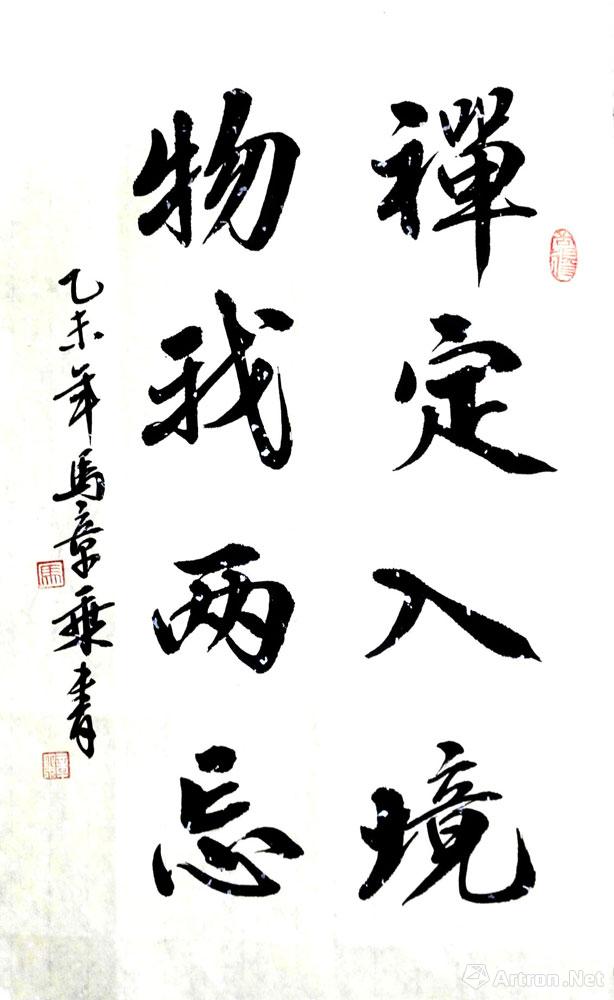 禪定入境
物我两忘
乙未年馬章乘書
馬
Artron.Net